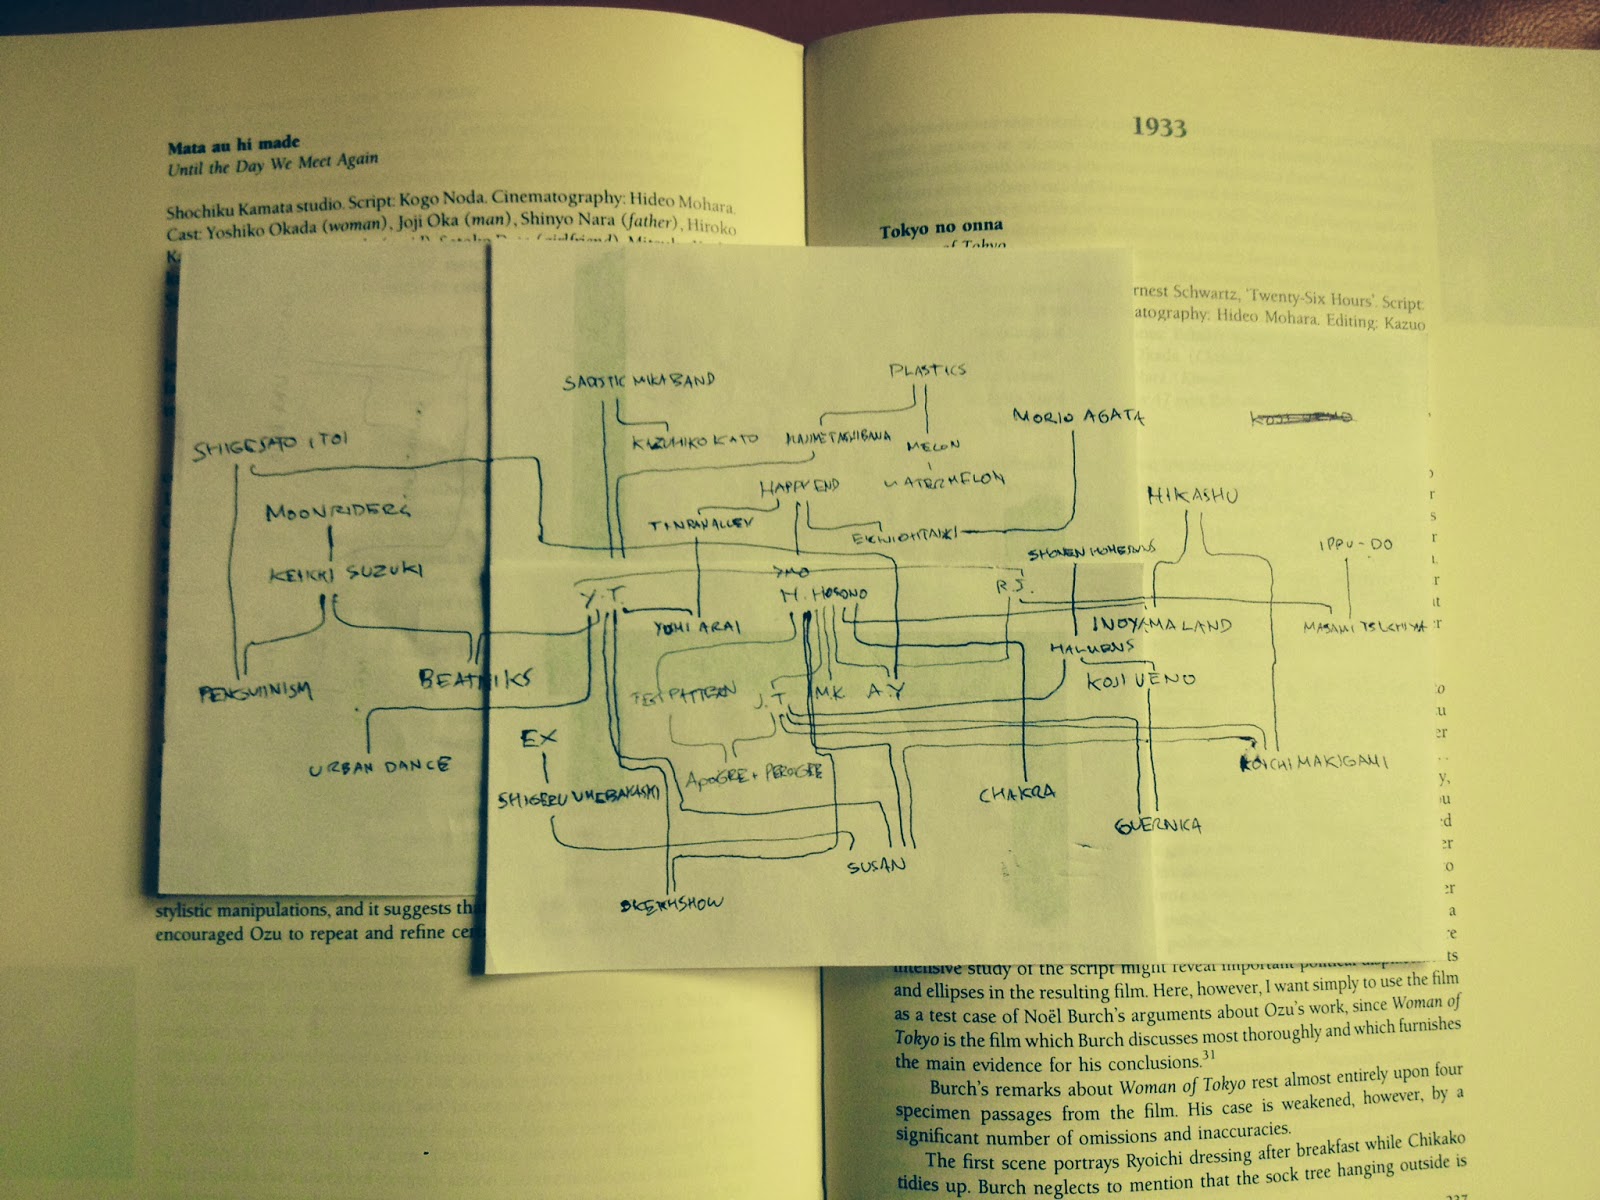 Mata au hi made
Until the Day We Meet Again
Shochiku Kamata studio. Script: Kogo Noda. Cinematography: Hideo Mohara.
Cast: Yoshiko Okada (woman), Joji Oka (man), Shinyo Nara (father), Hiroko
1933
Tokyo no onna
of Tokyo
rnest Schwartz, 'Twenty-Six Hours'. Script:
atography: Hideo Mohara. Editing: Kazuo
PLASTICS
SADISTIC MIKA BAND
MORIO AGATA
SHIGESATO ITOI
KAZUHIKO KATO
MELON
HAPPY END
WATERMELON
HIKASHU
MOONRIDERS
TINPANALLEY
SHONEN HOMERUNS
IPPU-DO
KEIICHI SUZUKI
YMO
Y.T.
H. HOSONO
R.S.
YOHI ARAI
INOYAMALAND
MASAMI TSUCHIYA
HALMENS
PENGUINISM
BEATNIKS
TEST PATTERN
J.T
M.K
A.Y
KOJI UENO
EX
URBAN DANCE
APOGEE + PERIGEE
KOICHI MAKIGAMI
SHIGERU UMEBAYASHI
CHAKRA
GUERNICA
SUSAN
stylistic manipulations, and it suggests th
encouraged Ozu to repeat and refine ce
intensive study of the script might reveal important political
and ellipses in the resulting film. Here, however, I want simply to use the film
as a test case of Noël Burch's arguments about Ozu's work, since Woman of
Tokyo is the film which Burch discusses most thoroughly and which furnishes
the main evidence for his conclusions.31
Burch's remarks about Woman of Tokyo rest almost entirely upon four
specimen passages from the film. His case is weakened, however, by a
significant number of omissions and inaccuracies.
The first scene portrays Ryoichi dressing after breakfast while Chikako
tidies up. Burch neglects to mention that the sock tree hanging outside is